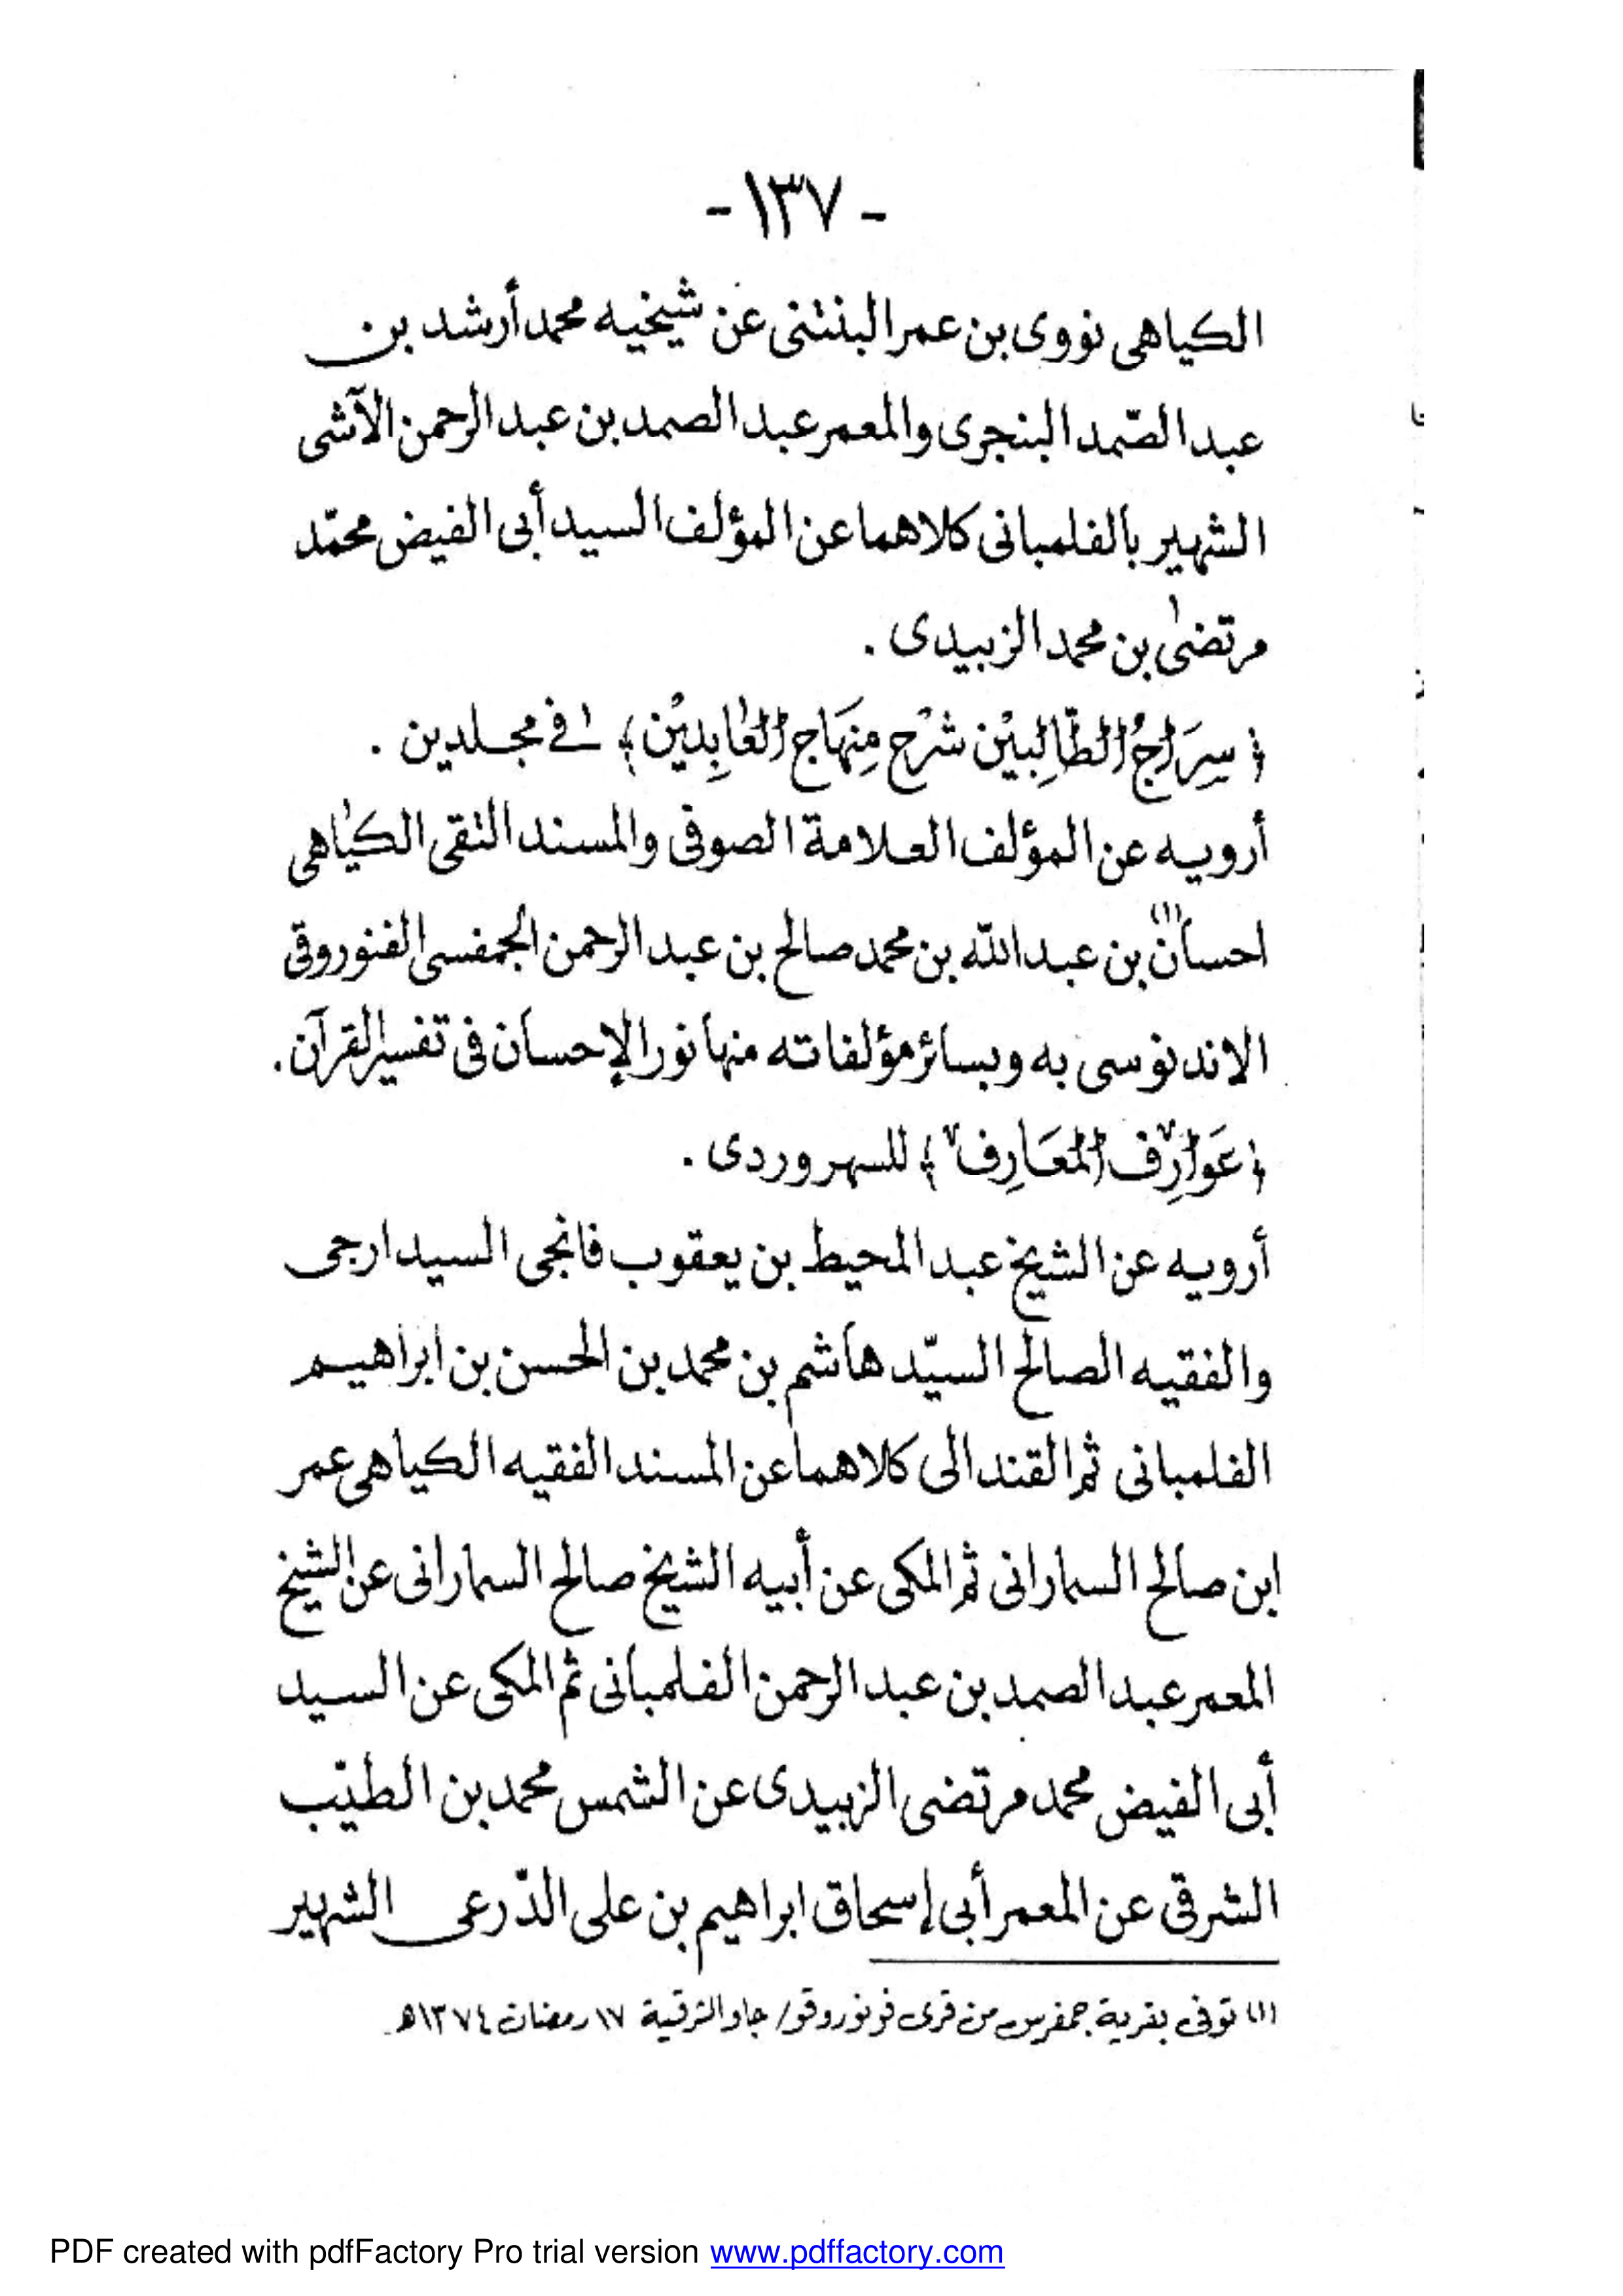 - ١٣٧ -
الكياهى نووى بن عمر البنتنى عن شيخيه محمد أرشد بن
عبد الصّمد البنجرى والمعمر عبد الصمد بن عبد الرحمن الآشى
الشهير بالفلمبانى كلاهما عن المؤلف السيد أبى الفيض محمّد
مرتضىٰ بن محمد الزبيدى .
﴿ سِرَاجُ الطَّالِبيْن شَرْح مِنهَاج العَابِدِيْن ﴾ فى مجلدين .
أرويه عن المؤلف العلامة الصوفى والمسند التقى الكياهى
احسان (١) بن عبد الله بن محمد صالح بن عبد الرحمن الجمفسى الفنوروقى
الاندنوسى به وبسائر مؤلفاته منها نور الإحسان فى تفسير القرآن .
﴿ عَوَارِف المَعَارِف ﴾ للسهروردى .
أرويه عن الشيخ عبد المحيط بن يعقوب فانجى السيدارجى
والفقيه الصالح السيّد هاشم بن محمد بن الحسن بن ابراهيم
الفلمبانى ثم القندالى كلاهما عن المسند الفقيه الكياهى عمر
ابن صالح السمارانى ثم المكى عن أبيه الشيخ صالح السمارانى عن الشيخ
المعمر عبد الصمد بن عبد الرحمن الفلمبانى ثم المكى عن السيد
أبى الفيض محمد مرتضى الزبيدى عن الشمس محمد بن الطيّب
الشرقى عن المعمر أبى إسحاق ابراهيم بن على الدّرعى الشهير
(١) توفى بقرية جمفرس من قرى فونوروقو/ جاوا الشرقية ١٧ رمضان ١٣٧٤ه
PDF created with pdfFactory Pro trial version www.pdffactory.com